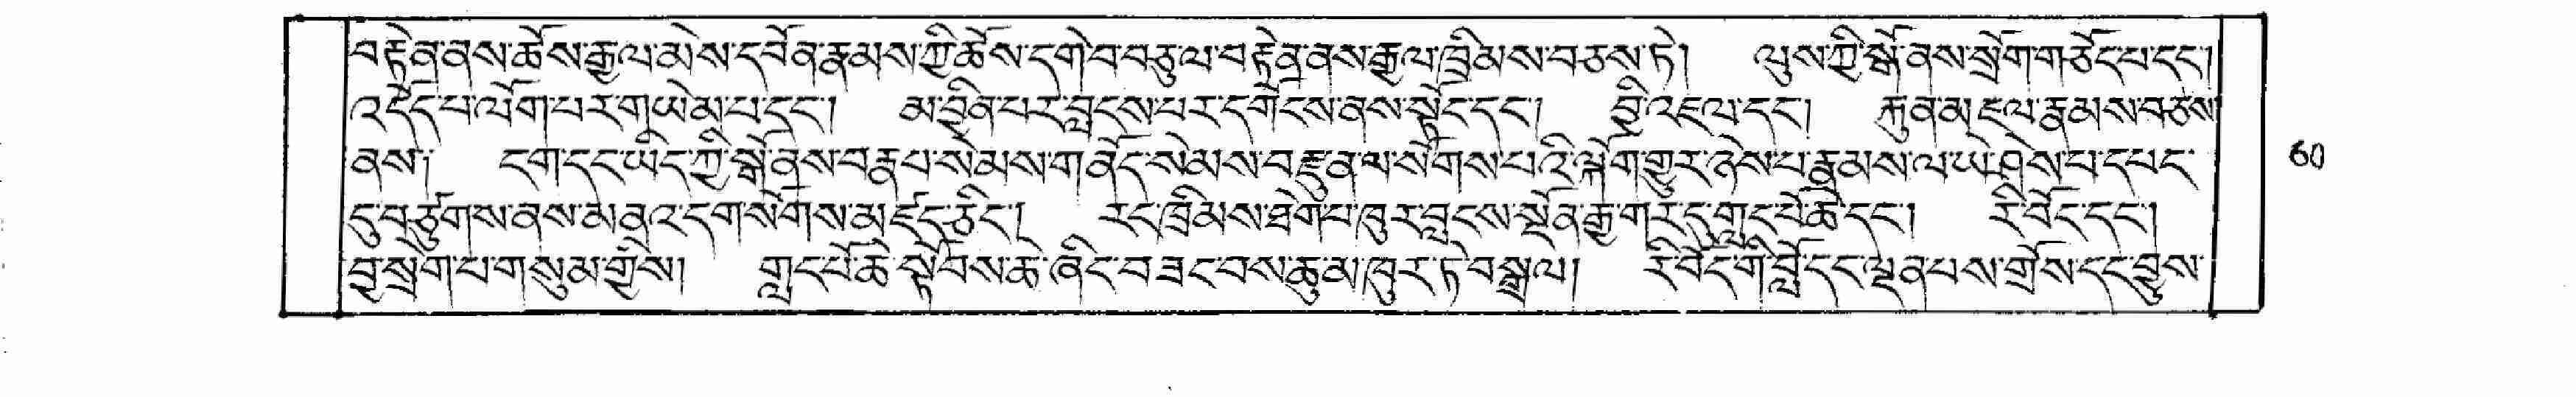 བརྟེན་ནས་ཆོས་རྒྱལ་མེས་དབོན་རྣམས་ཀྱི་ཆོས་དགེ་བ་བཅུ་ལ་བརྟེན་ནས་རྒྱལ་ཁྲིམས་བཅས་ཏེ། ལུས་ཀྱི་སྒོ་ནས་སྲོག་གཅོད་པ་དང་།
འདོད་པ་ལོག་པར་གཡེམ་པ་དང་། མ་བྱིན་པར་བླངས་པར་དགོངས་ནས་སྟོང་དང་། བྱི་འཇལ་དང་། རྐུན་མ་ཇལ་རྣམས་བཅས་
ནས། ངག་དང་ཡིད་ཀྱི་སྒོ་ནས་བརྣབ་སེམས་གནོད་སེམས་བརྫུན་ལ་སོགས་པའི་ལྐོག་གྱུར་ཉེས་པ་རྣམས་ལ་ཡེ་ཤེས་པ་དཔང་
དུ་བཙུགས་ནས་མནའ་དག་སོགས་མཛད་ཅིང་། རང་ཁྲིམས་ཐེག་པ་ཁུར་བླངས་སྔོན་རྒྱ་གར་དུ་གླང་པོ་ཆེ་དང་། རི་བོང་དང་།
བྱ་སྲེག་པ་གསུམ་གྱིས། གླང་པོ་ཆེ་སྟོབས་ཆེ་ཞིང་བཟང་བས་ཆུ་མ་ཁུར་ཏེ་བསྒྲལ། རི་བོང་གི་བློ་དང་ལྡན་པས་གྲོས་དང་བྱུས་
60